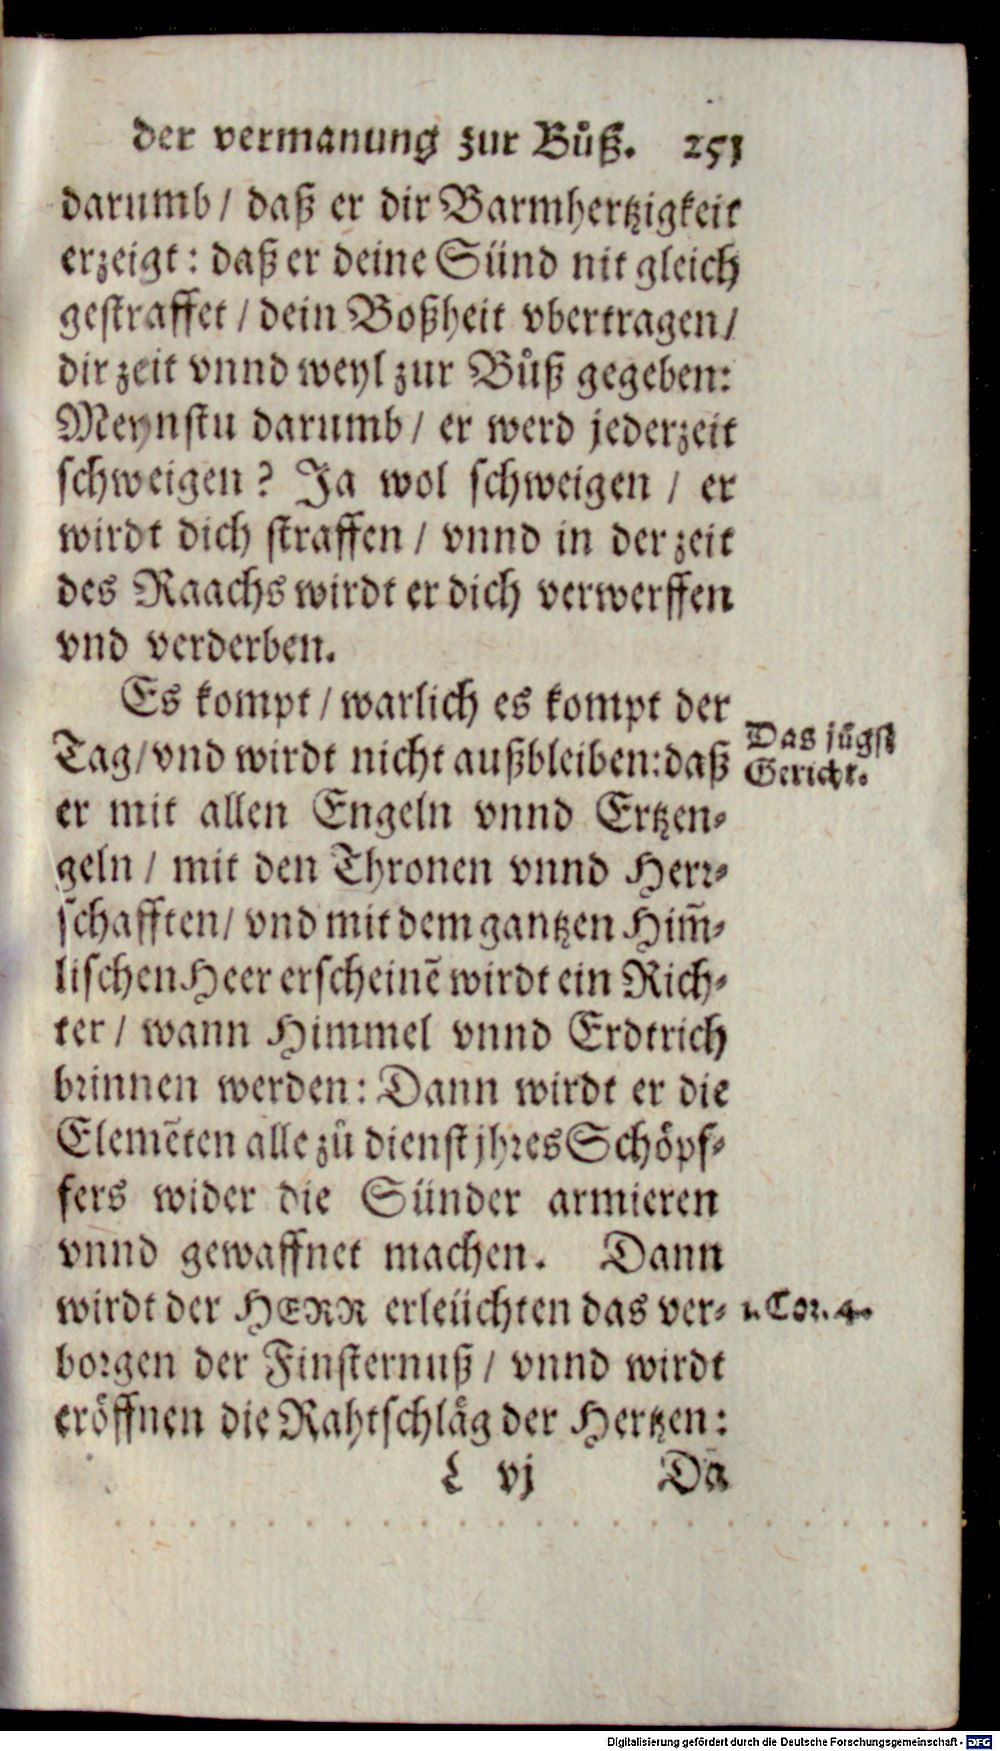 der vermanung zur Bůß. 251
darumb / daß er dir Barmhertzigkeit
erzeigt: daß er deine Sünd nit gleich
gestraffet / dein Boßheit vbertragen /
dir zeit vnnd weyl zur Bůß gegeben:
Meynstu darumb / er werd jederzeit
schweigen? Ja wol schweigen / er
wirdt dich straffen / vnnd in der zeit
des Raachs wirdt er dich verwerffen
vnd verderben.
Es kompt / warlich es kompt der
Tag / vnd wirdt nicht außbleiben: daß
Das jũgst
Gericht.
er mit allen Engeln vnnd Ertzen-
geln / mit den Thronen vnnd Herr-
schafften / vnd mit dem gantzen Him̃-
lischen Heer erscheinẽ wirdt ein Rich-
ter / wann Himmel vnnd Erdtrich
brinnen werden: Dann wirdt er die
Elemẽten alle zů dienst jhres Schöpf-
fers wider die Sünder armieren
vnnd gewaffnet machen. Dann
wirdt der HERR erleüchten das ver-
1. Cor. 4.
borgen der Finsternuß / vnnd wirdt
eröffnen die Rahtschläg der Hertzen:
L vj Da
Digitalisierung gefördert durch die Deutsche Forschungsgemeinschaft - DFG